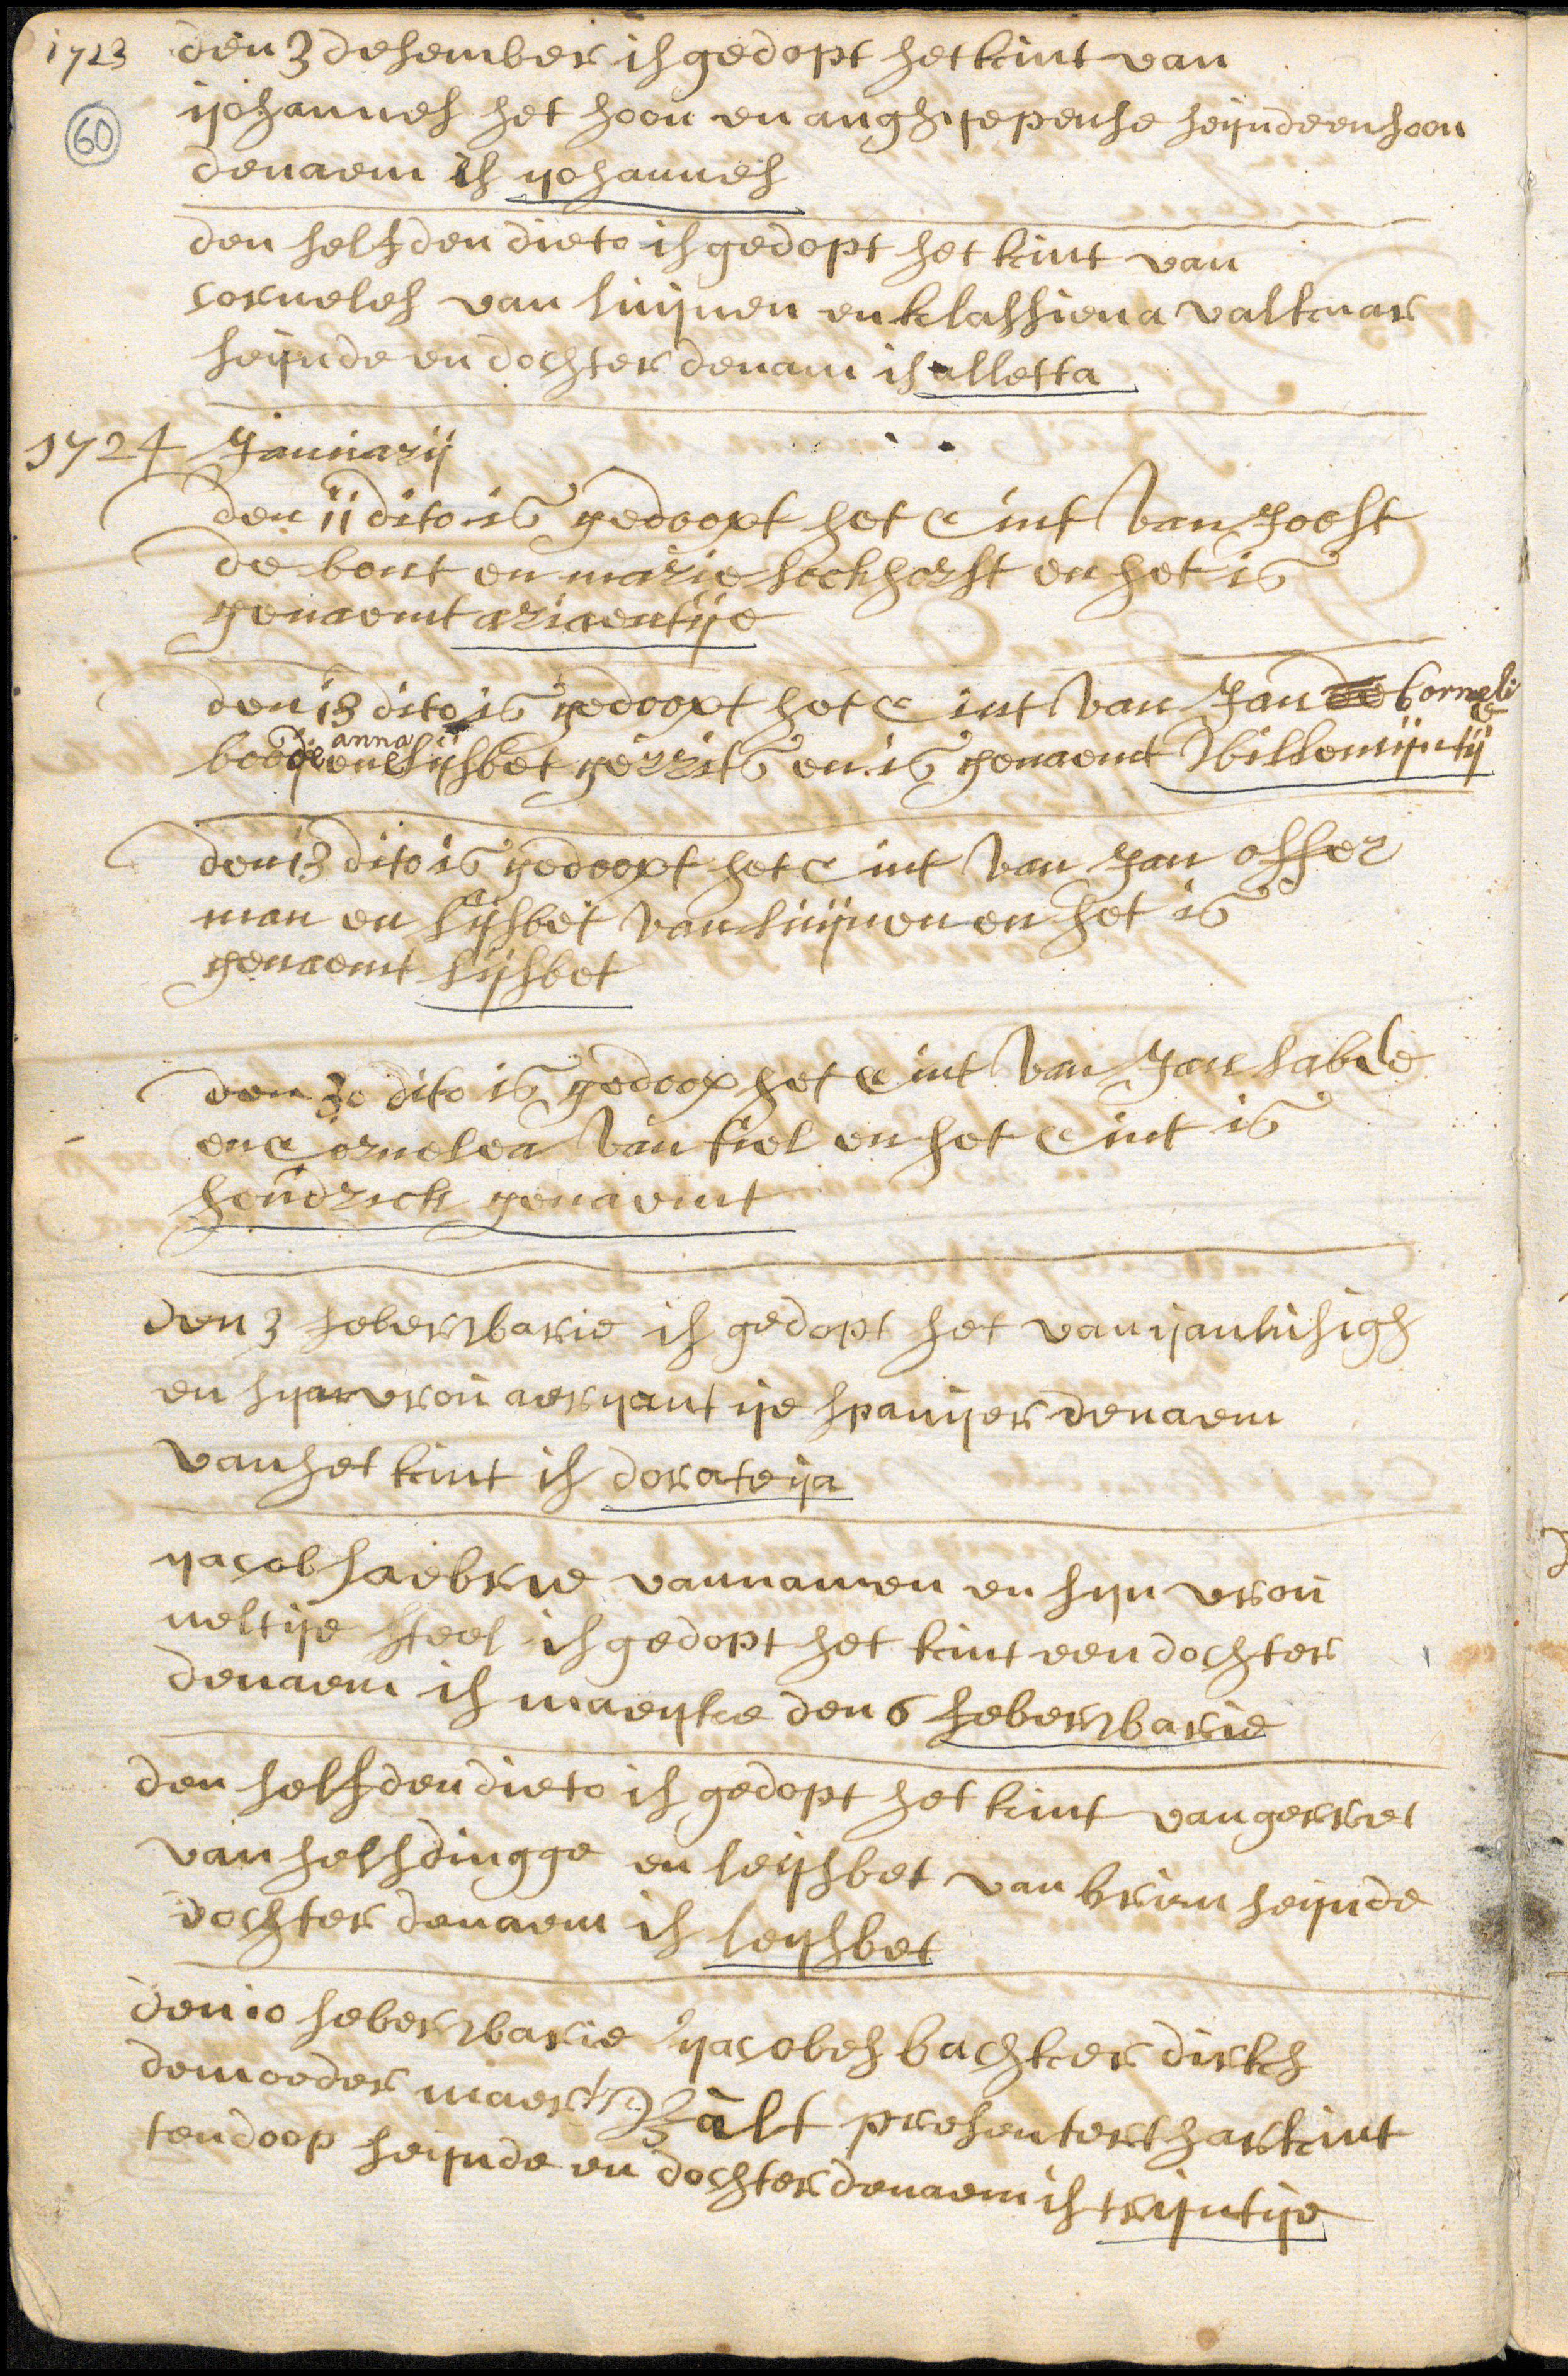 1723 den 3 desember is gedopt het kint van
60
ijohannes het hoon en anghijepense seijnde en soon
denaem is ijohannes
den selfden dieto is gedopt het kint van
corneles van luijnen en klassiena valknar
seijnde en dochter denam is alletta
1724 Januarij
den 11 dito is gedoopt het Cint van Joost
de bont en marie lockhorst en het is
genaemt ariaentije
den 13 dito is gedoopt het Cint van Jan de Corneli
anna
en lijsbet gerrits en is genaemt Willemijntij
den 13 dito is gedoopt het Cint van Jan offer
man en lijsbet van luijnen en het is
genaemt lijsbet
den 30 dito is gedoop het Cint van Jan labde
en Cornelea van tiel en het Cint is
hendrick genaemt
den 3 feberwarie is gedopt het van ijan
en sijn vrou aerijantije spanijer denaem
van het kint is dorateija
ijacob faebrie vannamen en sijn vrou
neltije steel is gedopt het kint een dochter
denaem is maerijke den 6 feberwarie
den selfden dieto is gedopt het kint van gerret
van helsdingge en leijsbet van briem seijnde
dochter denaem is leijsbet
den 10 feberwarie ijacobes bachker dirks
demoeder maer Walt presentert har kint
ten doop seijnde en dochter denaem is trijntije